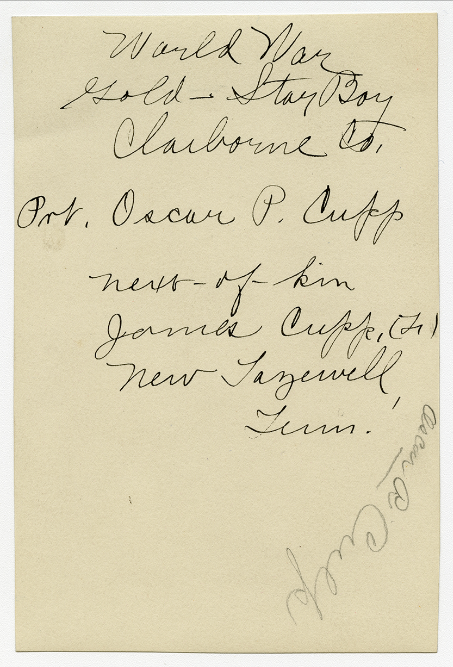 World War
Gold-Star Boy
Claiborne Co.
Pvt. Oscar P. Cupp
next-of-kin
James Cupp, (F.)
New Tazewell,
Tenn.
Oscar P. Cupp